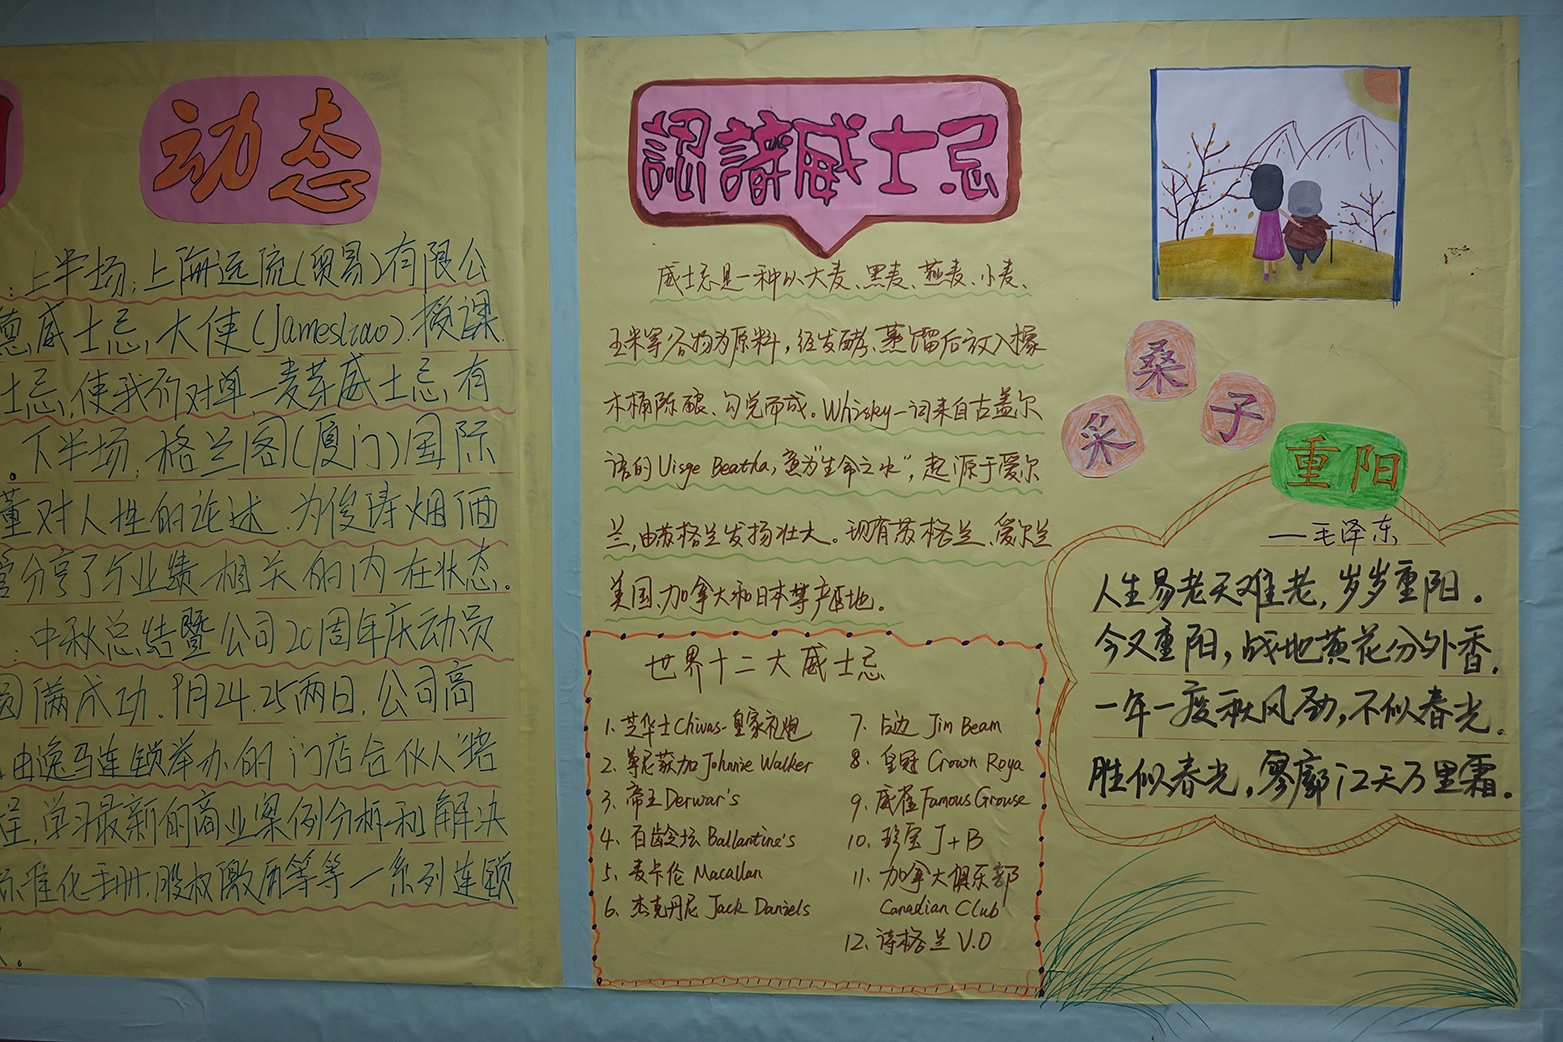 动态
：上半场：上海远流(贸易)有限公
德威士忌，大使(Jamesliao)．授课．
士忌，使我们对单一麦芽威士忌，有
。下半场，格兰阁(厦门)国际
董对人性的论述．为俊涛烟酒
分享了与业绩相关的内在状态．
：中秋总结暨公司20周年庆动员
圆满成功．9月24．25两日，公司高
由逸马连锁举办的"门店合伙人"
程，学习最新的商业案例分析和解决
标准化手册，股权激励等等一系列连锁
認識威士忌
威士忌是一种以大麦、黑麦、燕麦、小麦、
玉米等谷物为原料，经发酵、蒸馏后放入橡
木桶陈酿、勾兑而成。Whisky一词来自古盖尔
语的Uisge Beatha，意为"生命之水"，起源于爱尔
兰，由苏格兰发扬壮大。现有苏格兰、爱尔兰
美国，加拿大和日本等产区地。
世界十二大威士忌
1、芝华士Chivas-皇家礼炮
2、尊尼获加Johnnie Walker
3、帝王Derwar's
4、百龄坛Ballantine's
5、麦卡伦 Macallan
6、杰克丹尼 Jack Daniels
7、占边 Jim Beam
8、皇冠 Crown Roya
9、威雀Famous Grouse
10、珍宝 J+B
11、加拿大俱乐部
Canadian Club
12、诗格兰V.O
采桑子
重阳
——毛泽东
人生易老天难老，岁岁重阳。
今又重阳，战地黄花分外香。
一年一度秋风劲，不似春光。
胜似春光，寥廓江天万里霜。